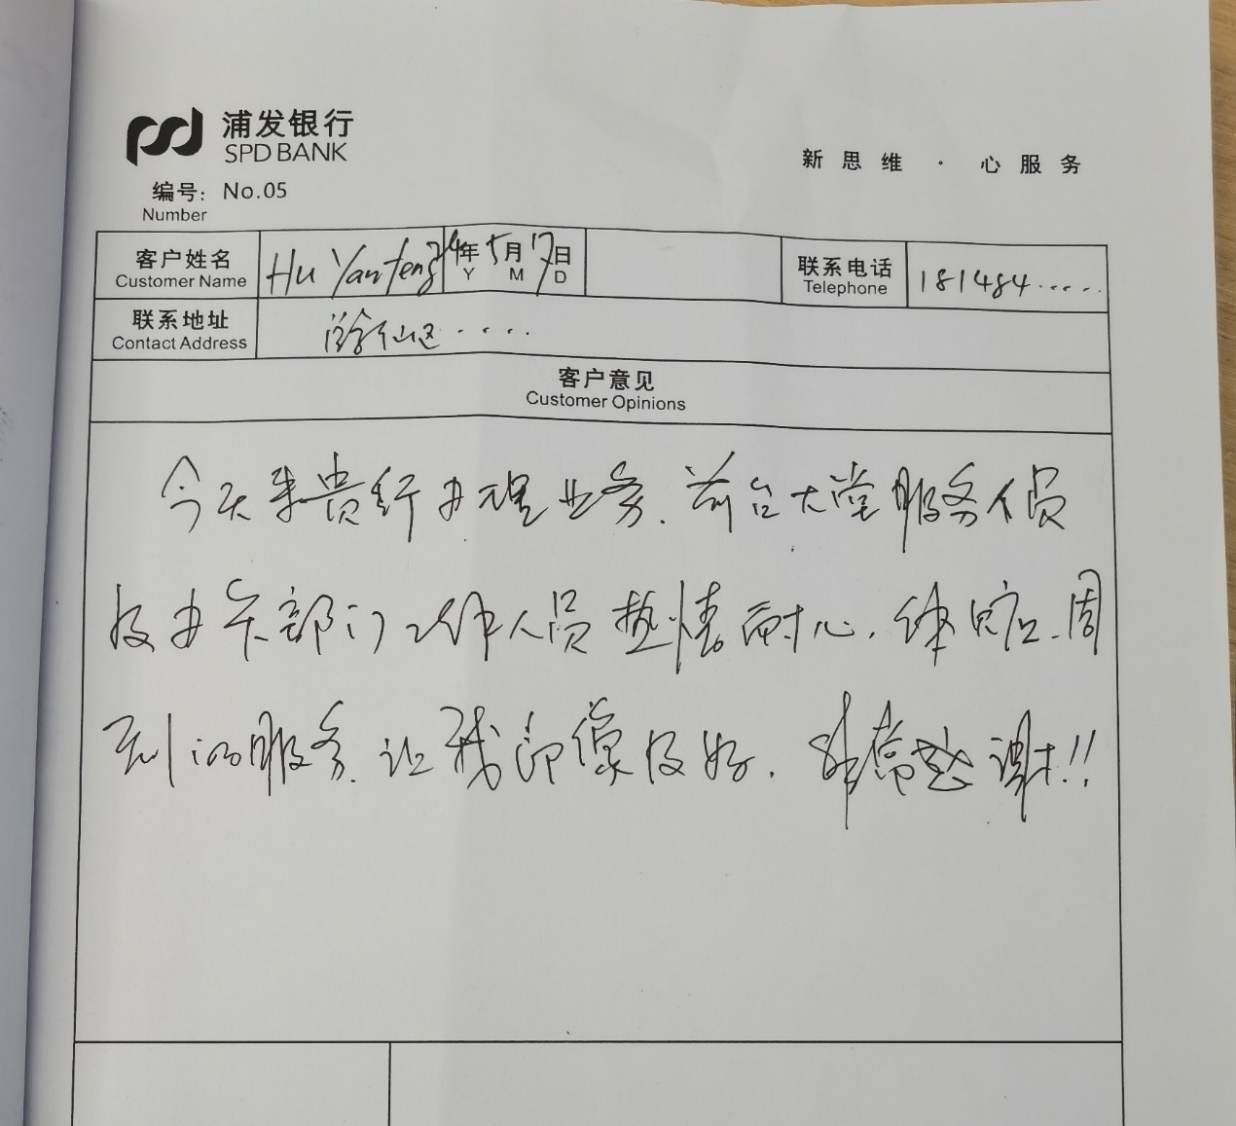 浦发银行
SPD BANK
新思维·心服务
编号: No.05
Number
客户姓名 Hu Yanfeng 24年5月17日 联系电话 181484.....
Customer Name Y M D Telephone
联系地址 游仙区.....
Contact Address
客户意见
Customer Opinions
今天来贵行办理业务.前台大堂服务人员
及办卡部门工作人员热情耐心,体贴、周
到的服务.让我印像极好.非常感谢!!